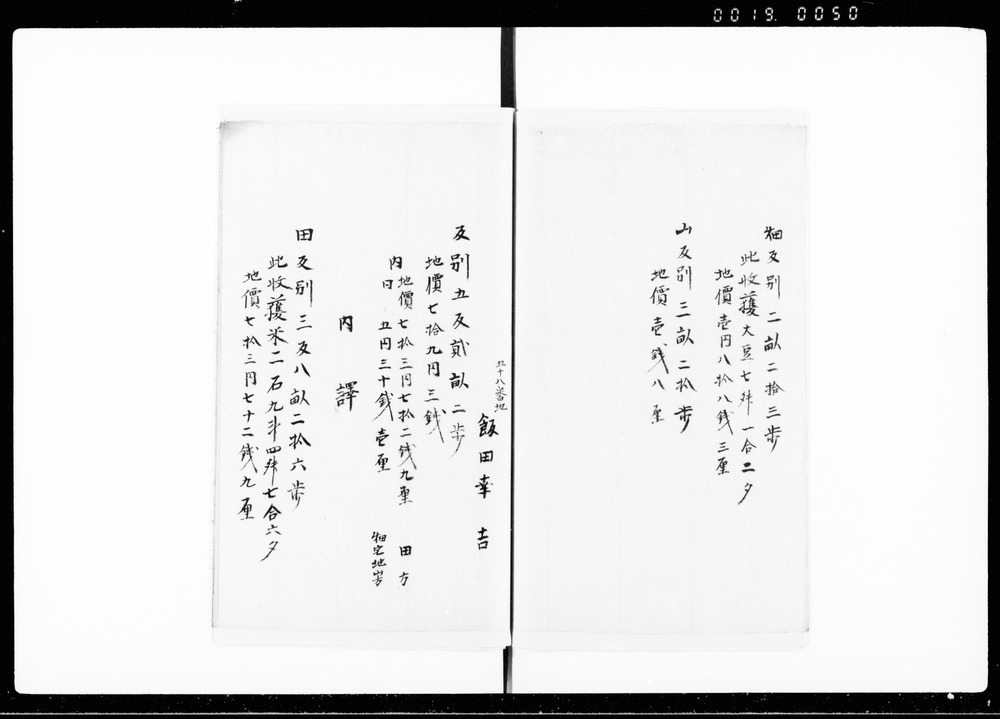 0019. 0050
畑反別二畝二拾三歩
此收獲大豆七升一合二夕
地價壱円八拾八錢三厘
山反別三畝二拾歩
地價壱錢八厘
五十八番地
飯田幸吉
反別五反貳畝二歩
地價七拾九円三錢
内地價七拾三円七拾二錢九厘 田方
内〃五円三十錢壱厘 畑宅地山方
内譯
田反別三反八畝二拾六歩
此收獲米二石九斗四升七合六夕
地價七拾三円七十二錢九厘